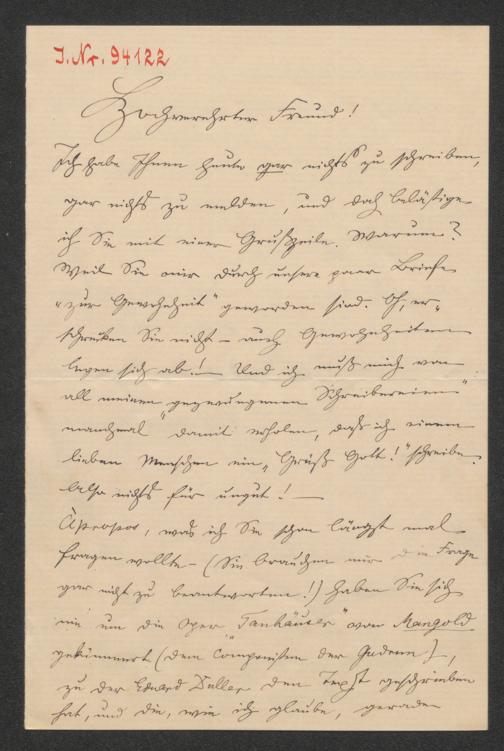 I. Nr. 94122
Hochverehrter Freund!
Ich habe Ihnen heute gar nichts zu schreiben,
gar nichts zu melden, und doch belästige
ich Sie mit einer Grußzeile. Warum?
Weil Sie mir durch unsere paar Briefe
„zur Gewohnheit“ geworden sind. Oh, er-
schrecken Sie nicht – auch Gewohnheiten
legen sich ab! – Und ich muß mich von
all meinen gezwungenen „Schreibereien“
manchmal damit erholen, daß ich einem
lieben Menschen ein „Grüß Gott!“ schreibe.
Also nichts für ungut! —
Apropos, was ich Sie schon längst mal
fragen wollte – (Sie brauchen mir die Frage
gar nicht zu beantworten!) haben Sie sich
nie um die Oper „Tanhäuser“ von Mangold
gekümmert (dem Componisten der Gudrun) –,
zu der Eduard Duller den Text geschrieben
hat, und die, wie ich glaube, gerade